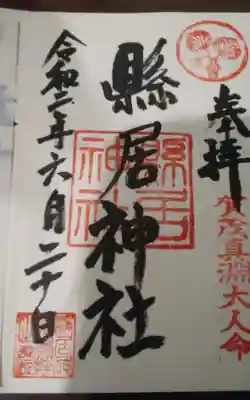 奉拝
賀茂真淵大人命
縣居神社
縣居神社
令和二年六月二十日